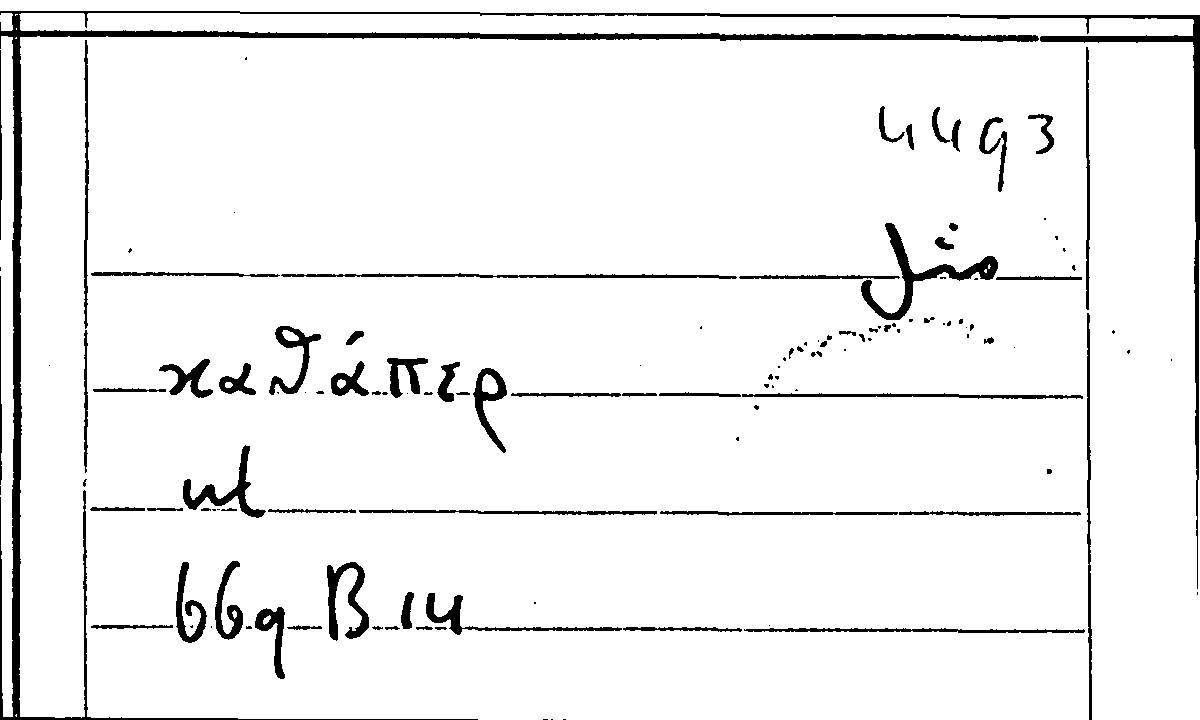 4493
καθάπερ
ut
669 B 14